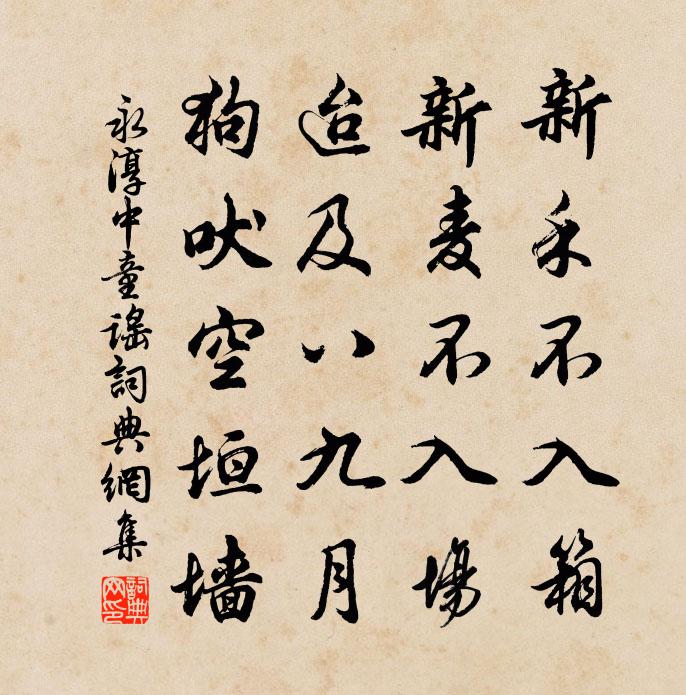 新禾不入箱
新麦不入場
迨及八九月
狗吠空垣墙
永淳中童謡詞典網集
詞典网印